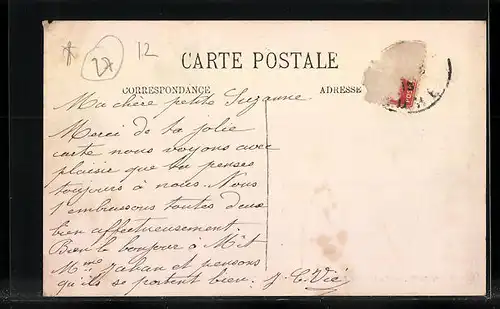 12
27
CARTE POSTALE
CORRESPONDANCE
ADRESSE
Ma chère petite Suzanne
Merci de ta jolie
carte nous voyons avec
plaisir que tu penses
toujours à nous. Nous
t'embrassons toutes deux
bien affectueusement.
Bien le bonjour à Mr et
Mme et pensons
qu'ils se portent bien.